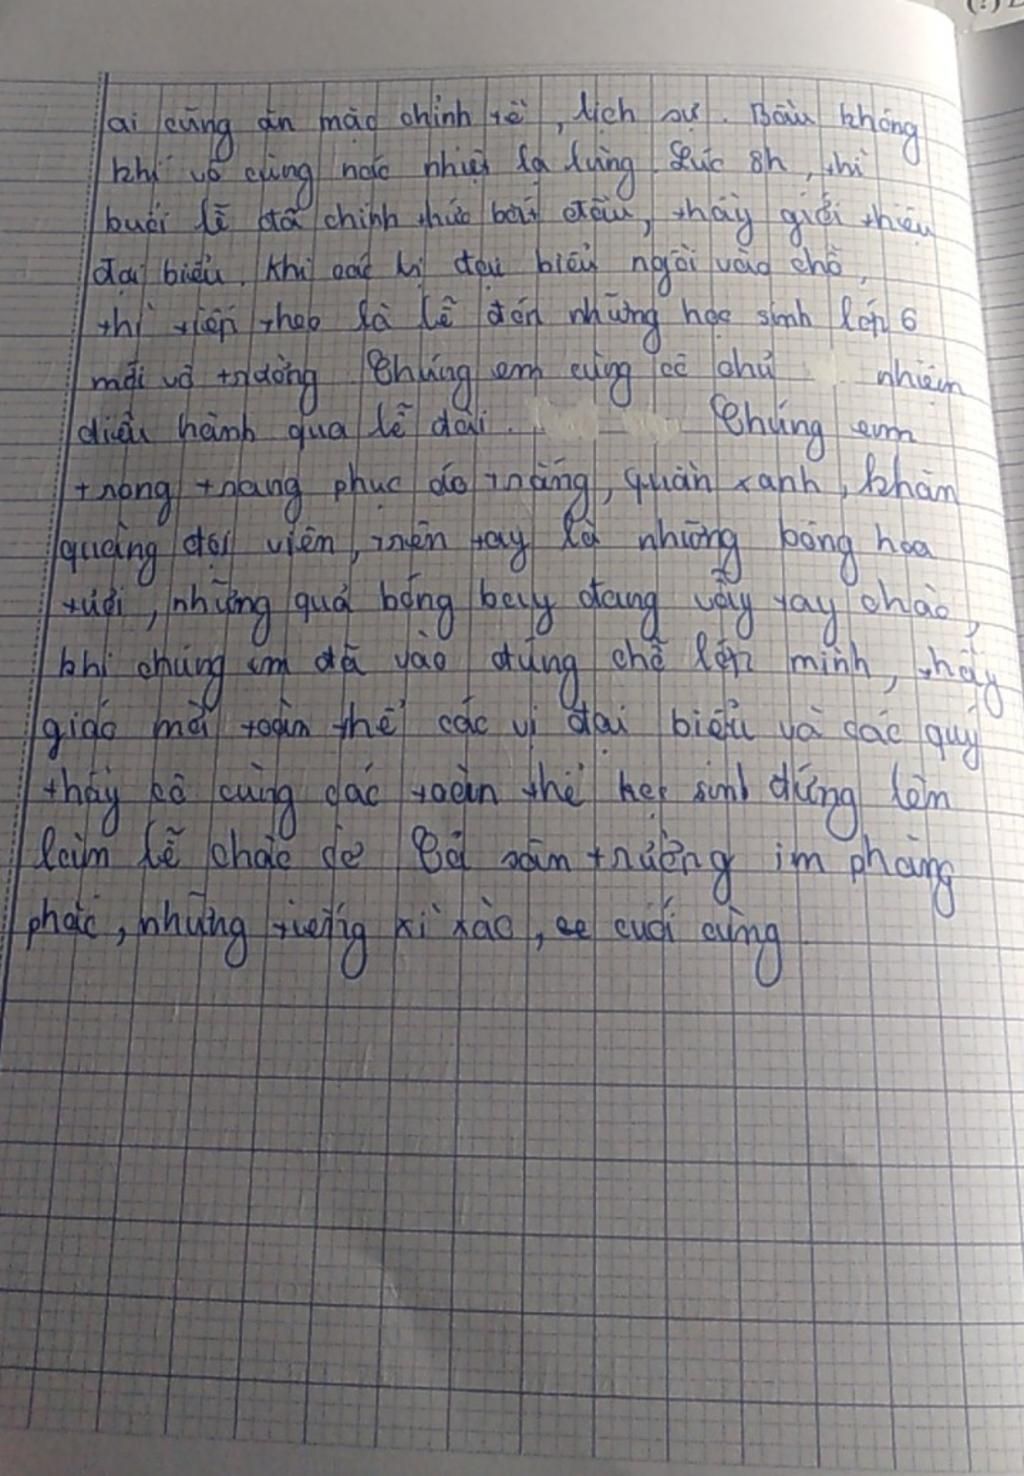 ai cũng ăn mặc chỉnh tề, lịch sự. Bầu không
khí vô cùng náo nhiệt lạ lùng. Lúc 8h, thì
buổi lễ đã chính thức bắt đầu, thầy giới thiệu
đại biểu. Khi các vị đại biểu ngồi vào chỗ,
thì tiếp theo là lễ đón những học sinh lớp 6
mới vô trường. Chúng em cùng cô chủ nhiệm
diễu hành qua lễ đài. Chúng em
trong trang phục áo trắng, quần xanh, khăn
quàng đội viên, trên tay là những bông hoa
tươi, những quả bóng bay đang vẫy tay chào,
khi chúng em đã vào đúng chỗ lớp mình, thầy
giáo mời toàn thể các vị đại biểu và các quý
thầy cô cùng các toàn thể học sinh đứng lên
làm lễ chào cờ. Cả sân trường im phăng
phắc, những tiếng xì xào, cuối cùng